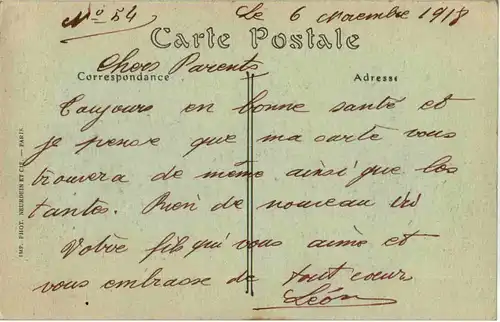 No 54
Le 6 Novembre 1918
Carte Postale
Chers Parents
Correspondance
Adresse
Toujours en bonne santé et
je pense que ma carte vous
trouvera de même ainsi que les
tantes. Rien de nouveau ici
Votre fils qui vous aime et
vous embrasse de tout cœur
Léon
IMP. PHOT. NEURDEIN ET CIE. — PARIS